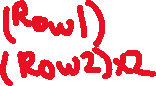 (Row1)
(Row2)x2